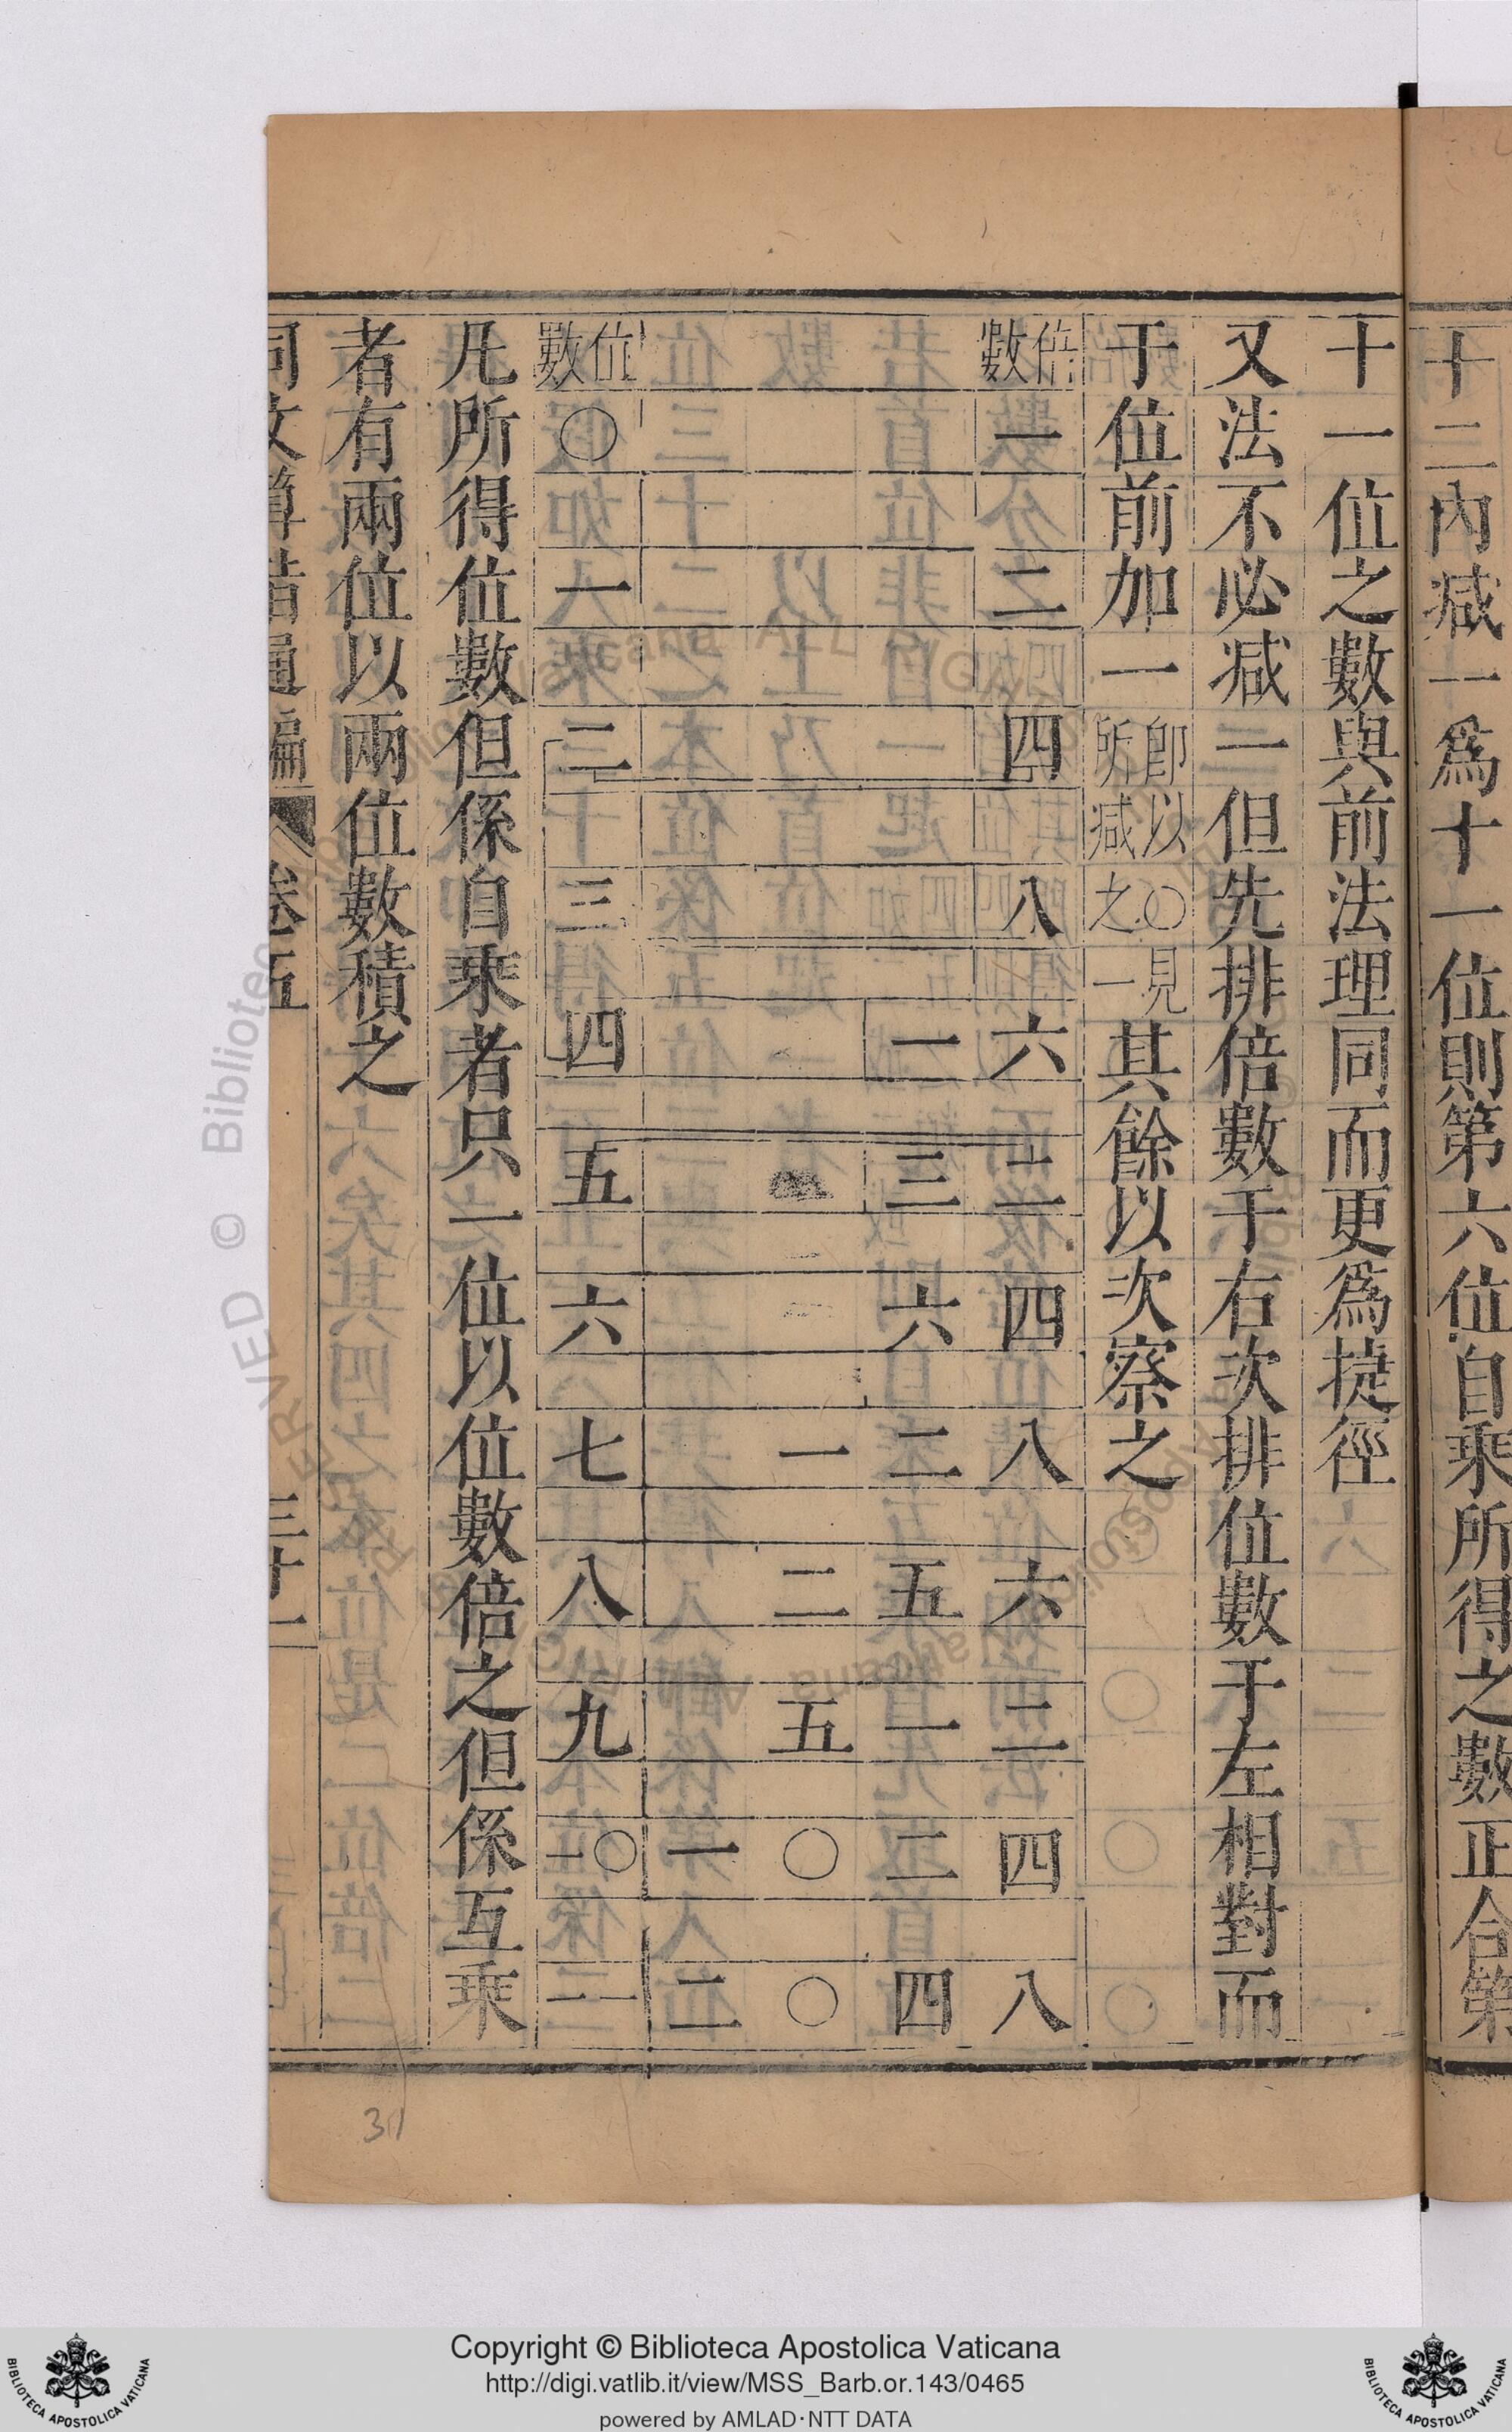 十二內減一為十一位則第六位自乘所得之數正合第
十一位之數與前法理同而更為捷徑
又法不必減一但先排倍數于右次排位數于左相對而
于位前加一即以〇見所減之一其餘以次察之
倍數 一 二 四 八 六 二 四 八 六 二 四 八
一 三 六 二 五 一 二 四
一 二 五 〇 〇
一 二
位數 〇 一 二 三 四 五 六 七 八 九 一〇 一一
凡所得位數但係自乘者只一位以位數倍之但係互乘
者有兩位以兩位數積之
同文算指通編 卷五 三十一
31
Copyright © Biblioteca Apostolica Vaticana
http://digi.vatlib.it/view/MSS_Barb.or.143/0465
powered by AMLAD·NTT DATA
BIBLIOTECA APOSTOLICA VATICANA
BIBLIOTECA APOSTOLICA VATICANA